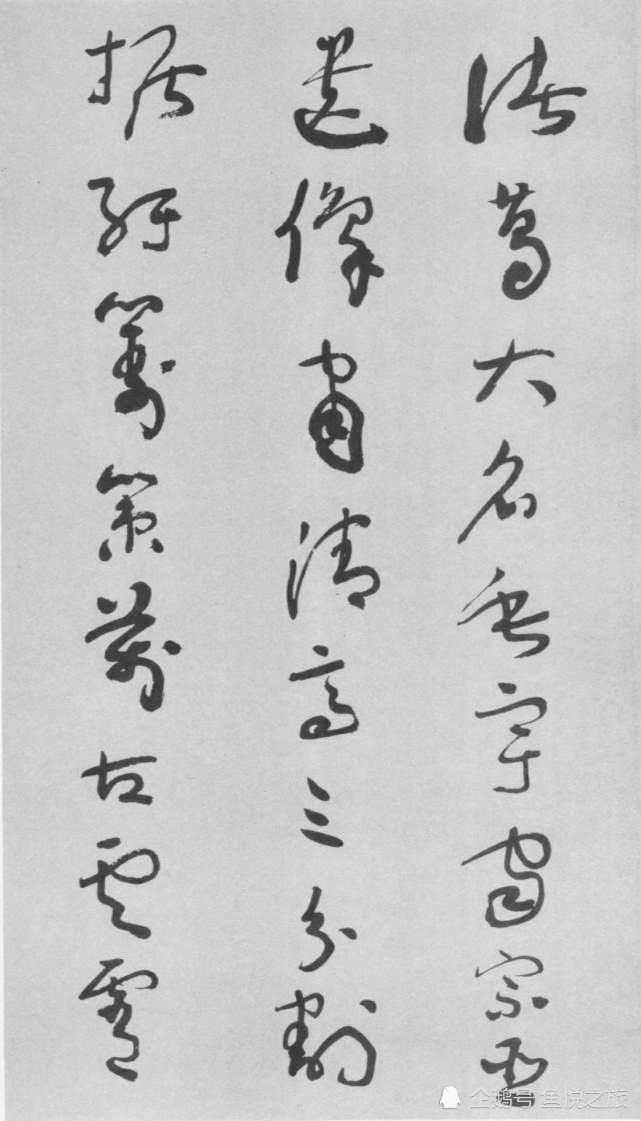 諸葛大名垂宇宙宗臣
遺像肅清高三分割
據紆籌策萬古雲霄
企鹅号 鱼悦之旅